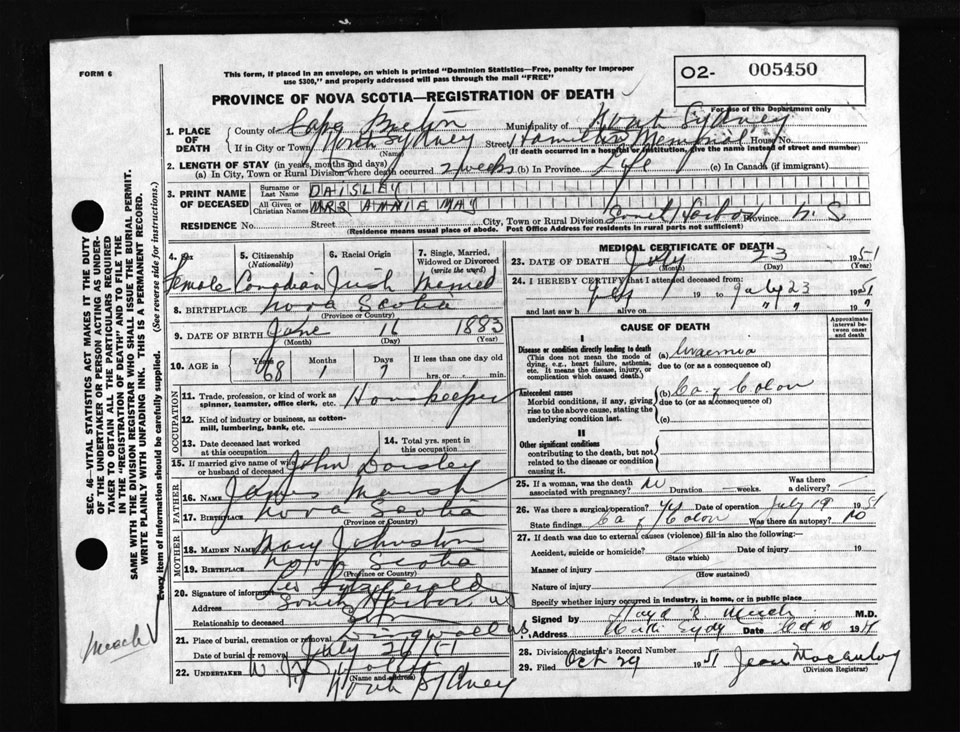 FORM 6
This form, if placed in an envelope, on which is printed "Dominion Statistics—Free, penalty for improper
use $300," and properly addressed will pass through the mail "FREE"
O2- 005450
For use of the Department only
PROVINCE OF NOVA SCOTIA—REGISTRATION OF DEATH
1. PLACE OF DEATH
County of Cape Breton Municipality of North Sydney
If in City or Town North Sydney Street Hamilton Memorial House No.
(Name) (If death occurred in a hospital or institution, give the name instead of street and number)
2. LENGTH OF STAY (in years, months and days)
(a) In City, Town or Rural Division where death occurred 2 weeks (b) In Province Life (c) In Canada (if immigrant)
3. PRINT NAME OF DECEASED
Surname or Last Name DAISLEY
All Given or Christian Names MRS ANNIE MAY
RESIDENCE No. Street City, Town or Rural Division Harbor Province N.S.
(Residence means usual place of abode. Post Office Address for residents in rural parts not sufficient)
4. Sex 5. Citizenship (Nationality) 6. Racial Origin 7. Single, Married, Widowed or Divorced (write the word)
Female Canadian Irish Married
8. BIRTHPLACE Nova Scotia
(Province or Country)
9. DATE OF BIRTH June 16 1883
(Month) (Day) (Year)
10. AGE in Years Months Days If less than one day old
68 1 7 hrs. or min.
OCCUPATION
11. Trade, profession, or kind of work as
spinner, teamster, office clerk, etc. Housekeeper
12. Kind of industry or business, as cotton-
mill, lumbering, bank, etc.
13. Date deceased last worked
at this occupation
14. Total yrs. spent in
this occupation
15. If married give name of wife
or husband of deceased John Daisley
FATHER
16. NAME James Marsh
17. BIRTHPLACE Nova Scotia
(Province or Country)
MOTHER
18. MAIDEN NAME Mary Johnston
19. BIRTHPLACE Nova Scotia
(Province or Country)
20. Signature of informant Fitzgerald
Address Harbor, NS
Relationship to deceased
21. Place of burial, cremation or removal Dingwall NS
Date of burial or removal July 26/51
22. UNDERTAKER W.
North Sydney
MEDICAL CERTIFICATE OF DEATH
23. DATE OF DEATH July 23 1951
(Month) (Day) (Year)
24. I HEREBY CERTIFY that I attended deceased from:
July 19 to July 23 1951
and last saw h alive on " " 19 "
CAUSE OF DEATH
Approximate interval between onset and death
I
Disease or condition directly leading to death
(This does not mean the mode of
dying, e.g., heart failure, asthenia,
etc. It means the disease, injury, or
complication which caused death.)
(a) Uraemia
due to (or as a consequence of)
Antecedent causes
Morbid conditions, if any, giving
rise to the above cause, stating the
underlying condition last.
(b) Ca of Colon
due to (or as a consequence of)
(c)
II
Other significant conditions
contributing to the death, but not
related to the disease or condition
causing it.
25. If a woman, was the death
associated with pregnancy? No Duration weeks. Was there a delivery?
26. Was there a surgical operation? Yes Date of operation July 19 1951
State findings Ca of Colon Was there an autopsy? No
27. If death was due to external causes (violence) fill in also the following:
Accident, suicide or homicide? Date of injury 19
(State which)
Manner of injury
(How sustained)
Nature of injury
Specify whether injury occurred in industry, in home, or in public place
Signed by M.D.
Address North Sydney Date Oct 10 1951
28. Division Registrar's Record Number
29. Filed Oct 29 1951 Jean
(Division Registrar)
SEC. 46—VITAL STATISTICS ACT MAKES IT THE DUTY
OF THE UNDERTAKER OR PERSON ACTING AS UNDER-
TAKER TO OBTAIN ALL THE PARTICULARS REQUIRED
IN THE "REGISTRATION OF DEATH" AND TO FILE THE
SAME WITH THE DIVISION REGISTRAR WHO SHALL ISSUE THE BURIAL PERMIT.
WRITE PLAINLY WITH UNFADING INK. THIS IS A PERMANENT RECORD.
Every item of information should be carefully supplied. (See reverse side for instructions.)